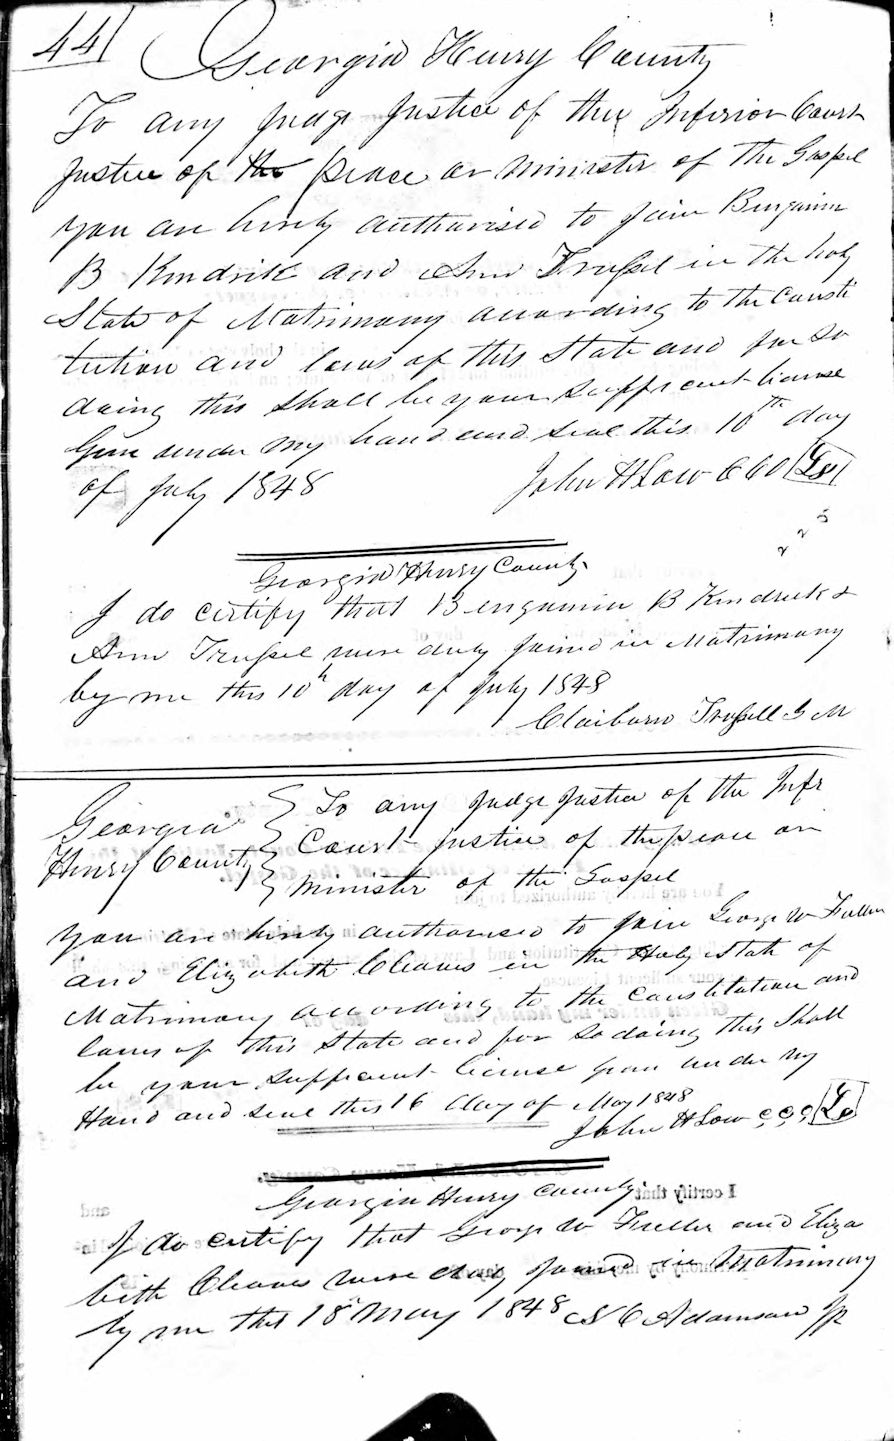 44
Georgia Henry County
To any Judge Justice of the Inferior Court
Justice of the peace or minister of the Gospel
you are hereby authorised to Join Bengamin
B Kendrick and Ann Trussel in the holy
State of Matrimony according to the Consti
tution and laws of this State and for so
doing this shall be your sufficent license
Given under my hand and seal this 10th day
of July 1848 John H Low C C O Ls
Georgia Henry County
I do certify that Bengamin B Kendrick &
Ann Trussel were duly Joined in Matrimony
by me this 10th day of July 1848
Claiborn Trussell G M
Georgia To any Judge Justice of the Infr
Henry County Court Justice of the peace or
Minister of the Gospel
you are hereby authorised to Join George W Fuller
and Elizabeth Cleaves in the Holy State of
Matrimony according to the Constitution and
laws of this State and for so doing this Shall
be your sufficent license given under my
Hand and seal this 16 day of May 1848
John H Low c c o Ls
Georgia Henry County
I do certify that George W Fuller and Eliza
beth Cleaves were duly Joined in Matrimony
by me this 18th May 1848 N C Adamson Jp